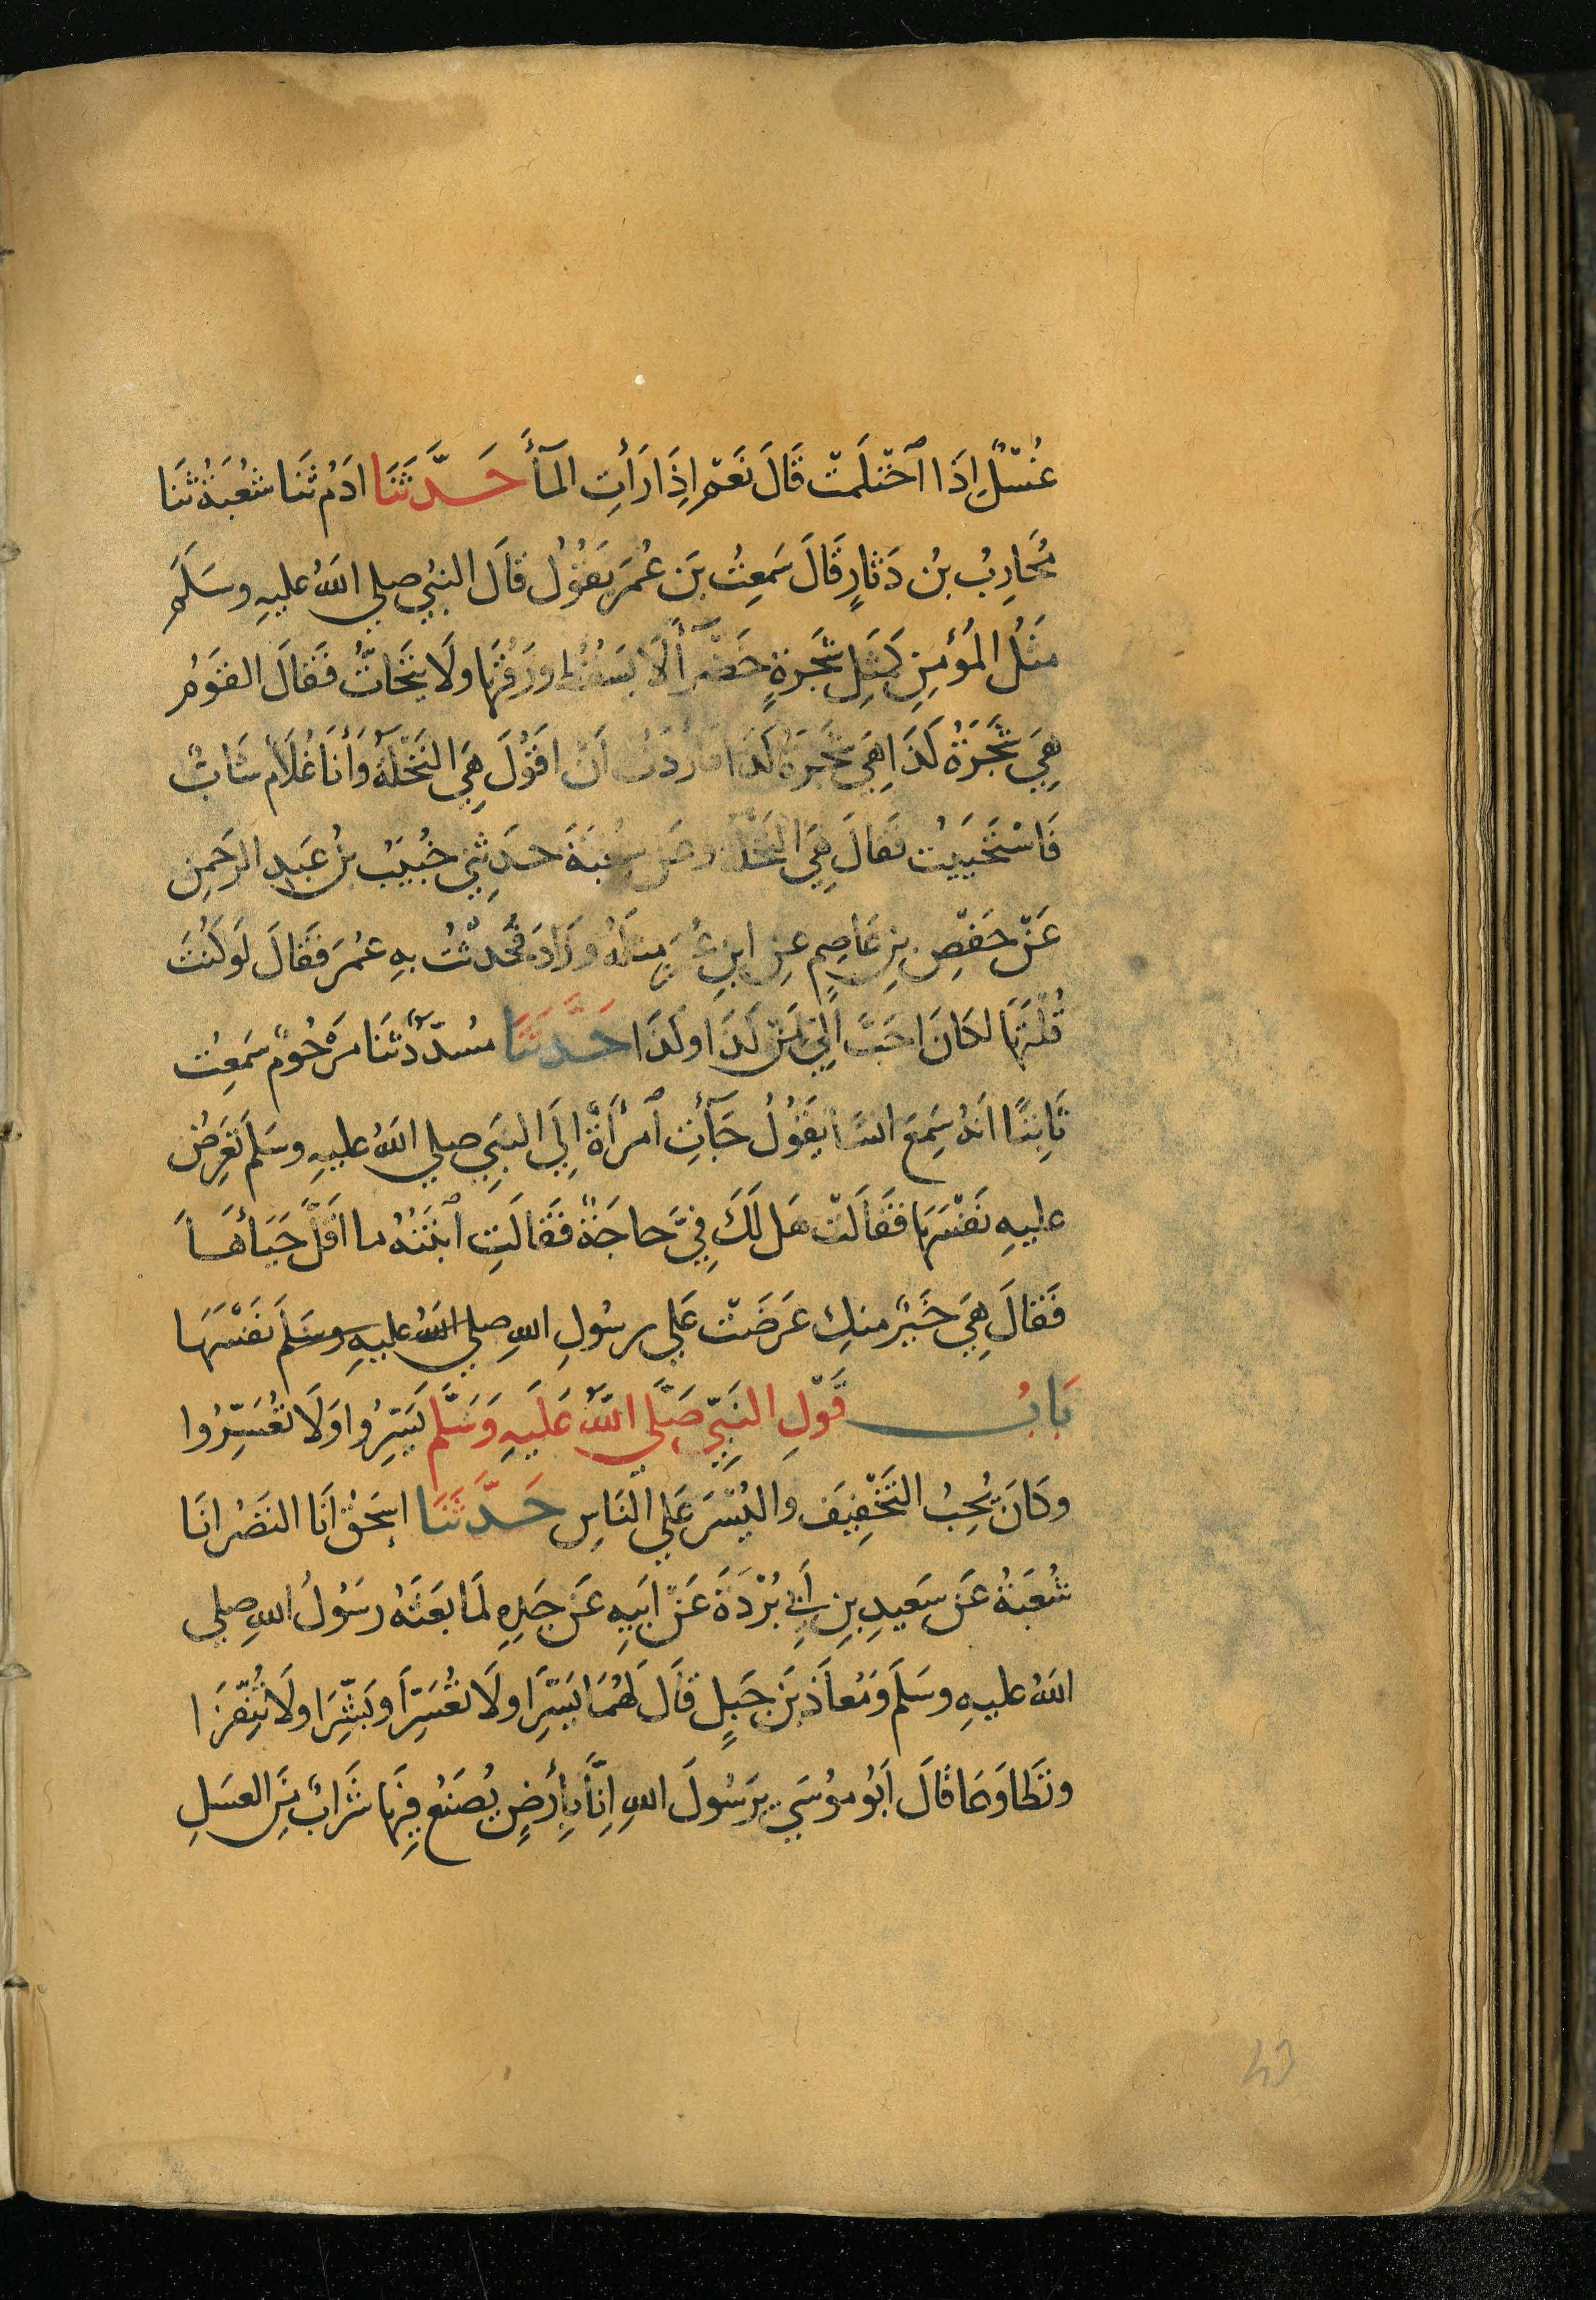 غُسْلٌ اِذَا اَحْتَلَمَتْ قَالَ نَعَمْ اِذَا رَأتِ المآءَ حَدَّثَنَا ادَمُ ثَنَا شُعْبَةُ ثَنَا
مُحَارِبُ بْنُ دَثَارٍ قَالَ سَمِعْتُ بَنَ عُمَرَ يَقُوْلُ قَالَ النبيُ صلي اللهُ عليهِ وسَلَمَ
مَثَلُ المُؤمِنِ كَمَثَلِ شَجَرَةٍ خَضْرآءَ لَا يَسْقُطُ ورَقُهَا ولَا يَتَحَاتُّ فَقَالَ القَوْمُ
هِيَ شَجَرَةُ كَذَا هِيَ شَجَرَةُ كَذَا فَارَدْتُ اَنْ اقَوُلَ هِيَ النَخْلَةُ وَأنَا غُلَامٌ شَابٌ
فَاسْتَحْيَيْتُ فَقَالَ هِيَ النَخْلَةُ وعَن شُعْبَةَ حَدَثِني خُبَيْبُ بْنُ عَبدِ الرحَمنِ
عَنْ حَفْصِ بنِ عَاصِمٍ عنِ ابنِ عُمَرَ مِثْلَهُ وزَادَ فَحَدثْتُ بهِ عمُرَ فَقَالَ لَوكُنْتَ
قُلْتَهَا لكَانَ احَبَّ اِلَيَّ مِنْ كَذَا وكَذَا حَدَّثَنَا مُسدَّدٌ ثَنَا مَرْحُومٌ سَمِعْتُ
ثَابِتًا انَهُ سَمِعَ انسًا يَقُوْلُ جَآءَتِ اَمْرأَةٌ اِلَى النبَيِ صلي اللهُ عليهِ وسَلَم تَعْرِضُ
عليهِ نَفْسَهَا فَقَالَتْ هَل لَكَ فِيَّ حَاجَةٌ فَقَالَتِ ابْنَتُهُ ما اقَلَّ حَيَاءَهَا
فَقَالَ هِيَ خَيْرٌ منكِ عَرَضَتْ عَلي رسُولِ اللهِ صلي اللهُ عليهِ وسَلَم نَفْسَهَا
بَابُ قَوْلِ النَبيِّ صَلَّي اللهُ عَلَيهِ وَسَلَّم يَسِّرُوا وَلَا تُعَسِّرُوا
وكَانَ يُحِبُ التَخْفِيفَ وَاليُسْرَ عَلي النَاسِ حَدَّثَنَا اسحَقُ انَا النَضْرُ انَا
شُعْبَةُ عَن سَعيدِ بنِ اَبِي بُرْدَةَ عَنْ ابَيِهِ عَن جَدِهِ لَما بَعَثَهُ رَسُوْلُ اللهِ صلي
اللهُ عليهِ وسَلَمَ وَمُعَاذَ بَن جَبلٍ قَالَ لَهُمَا يَسِّرَا ولَا تُعَسِّرَا وبَشِّرَا ولَا تُنفِّرَا
وتَطَاوَعَا قَالَ اَبوُ موُسَي يرَسُولَ اللهِ اِنَّا بِأرَضٍ يُصْنَعُ فِيهَا شَرَابٌ مِنَ العسَلِ
43